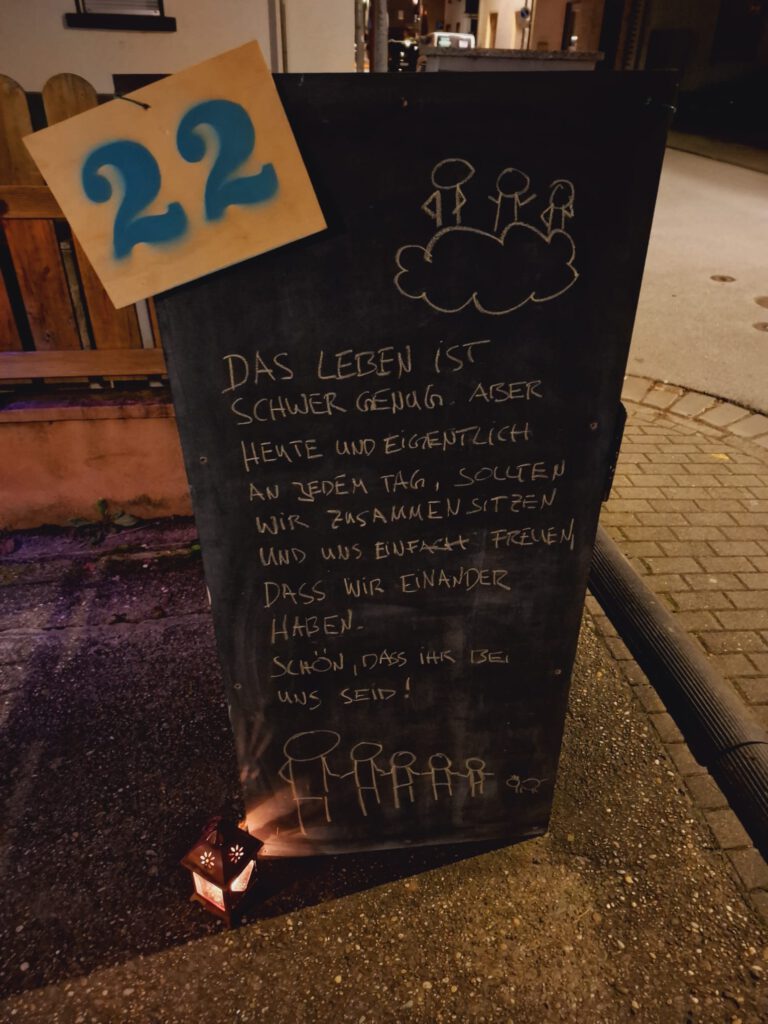 22
DAS LEBEN IST
SCHWER GENUG. ABER
HEUTE UND EIGENTLICH
AN JEDEM TAG, SOLLTEN
WIR ZUSAMMENSITZEN
UND UNS EINFACH FREUEN,
DASS WIR EINANDER
HABEN.
SCHÖN, DASS IHR BEI
UNS SEID!